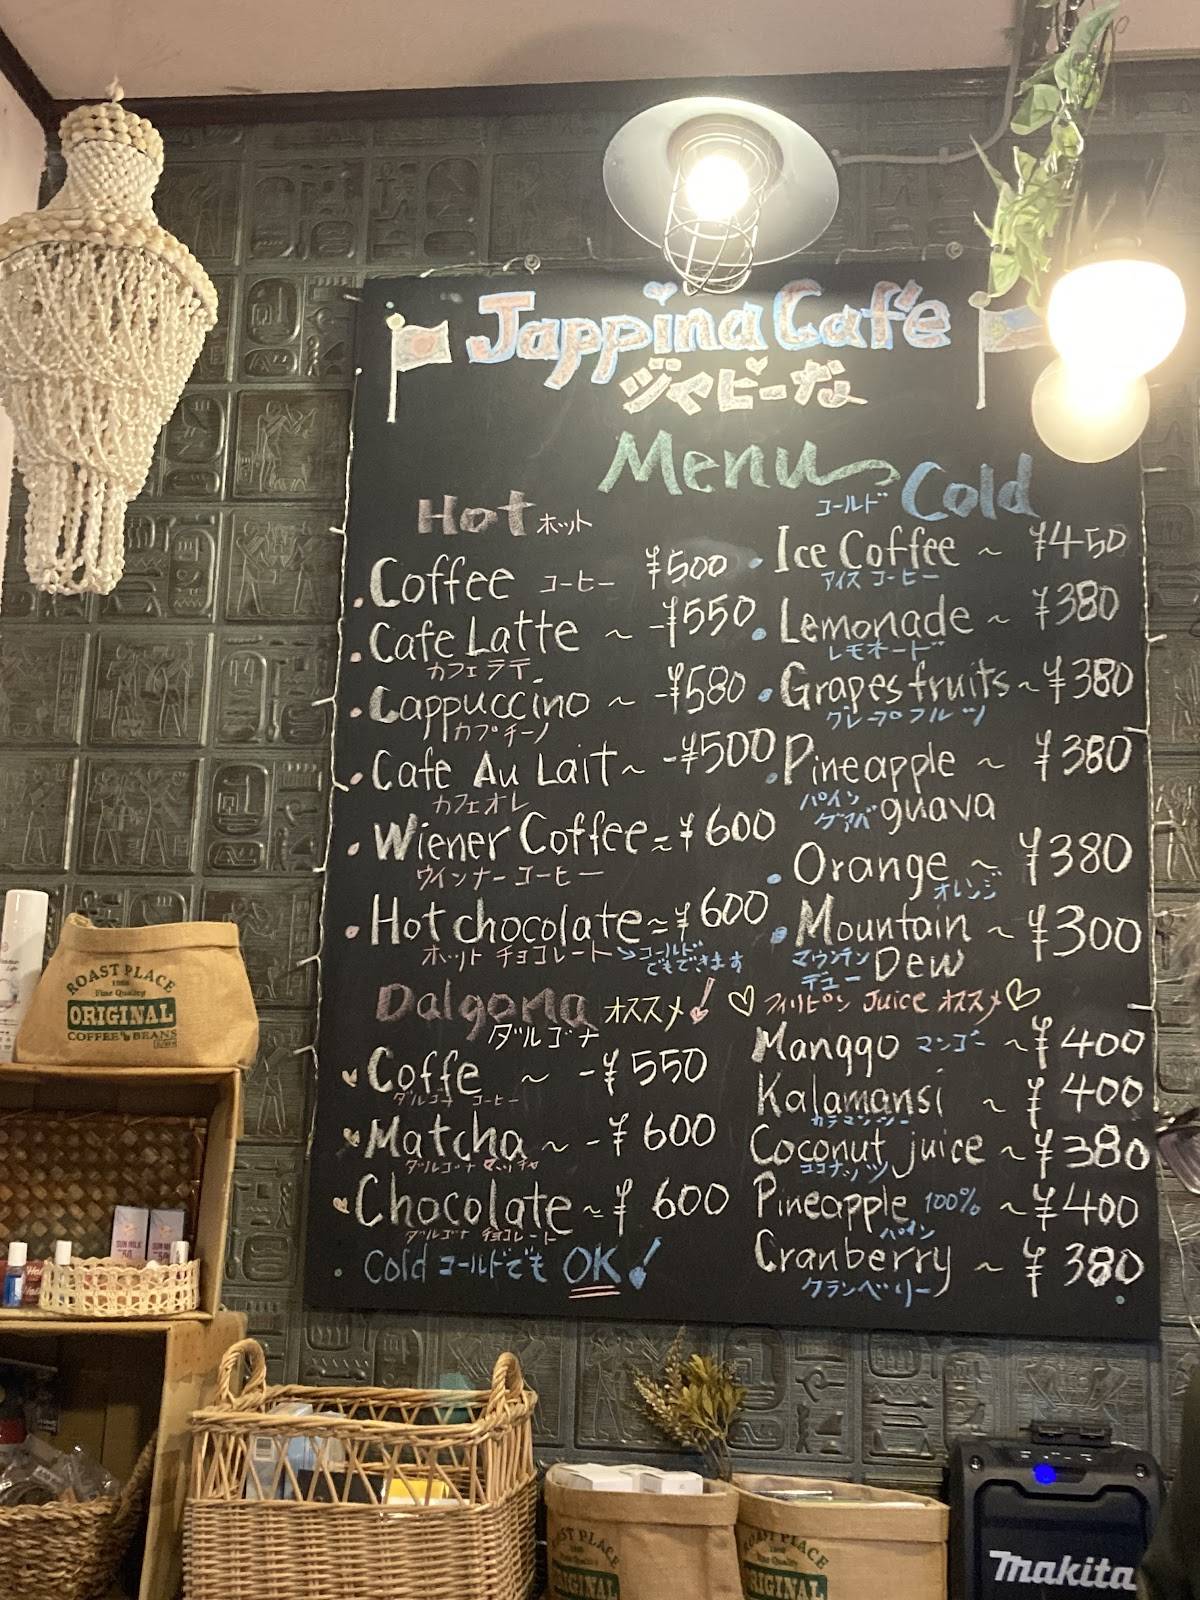 Jappina Café
ジャピーな
Menu
Hot ホット
・Coffee コーヒー ¥500
・Cafe Latte ~ -¥550
カフェラテ
・Cappuccino ~ -¥580
カプチーノ
・Cafe Au Lait ~ -¥500
カフェオレ
・Wiener Coffee ~ ¥600
ウインナーコーヒー
・Hot chocolate ~ ¥600
ホットチョコレート→コールドでもできます
Dalgona オススメ!
ダルゴナ
Coffe ~ -¥550
ダルゴナ コーヒー
Matcha ~ -¥600
ダルゴナ マッチャ
Chocolate ~ ¥600
ダルゴナ チョコレート
・Cold コールドでも OK!
コールド Cold
・Ice Coffee ~ ¥450
アイスコーヒー
・Lemonade ~ ¥380
レモネード
・Grapes fruits ~ ¥380
グレープフルーツ
・Pineapple ~ ¥380
パイン グァバ guava
・Orange ~ ¥380
オレンジ
・Mountain ~ ¥300
マウンテン デュー Dew
♡フィリピン Juice オススメ♡
Manggo マンゴー ~ ¥400
Kalamansi ~ ¥400
カラマンシー
Coconut juice ~ ¥380
ココナッツ
Pineapple 100% ~ ¥400
パイン
Cranberry ~ ¥380
クランベリー
ROAST PLACE
1988
Fine Quality
ORIGINAL
COFFEE BEANS
SUN MILK
SUN MILK
ROAST PLACE
ORIGINAL
ROAST PLACE
ORIGINAL
makita